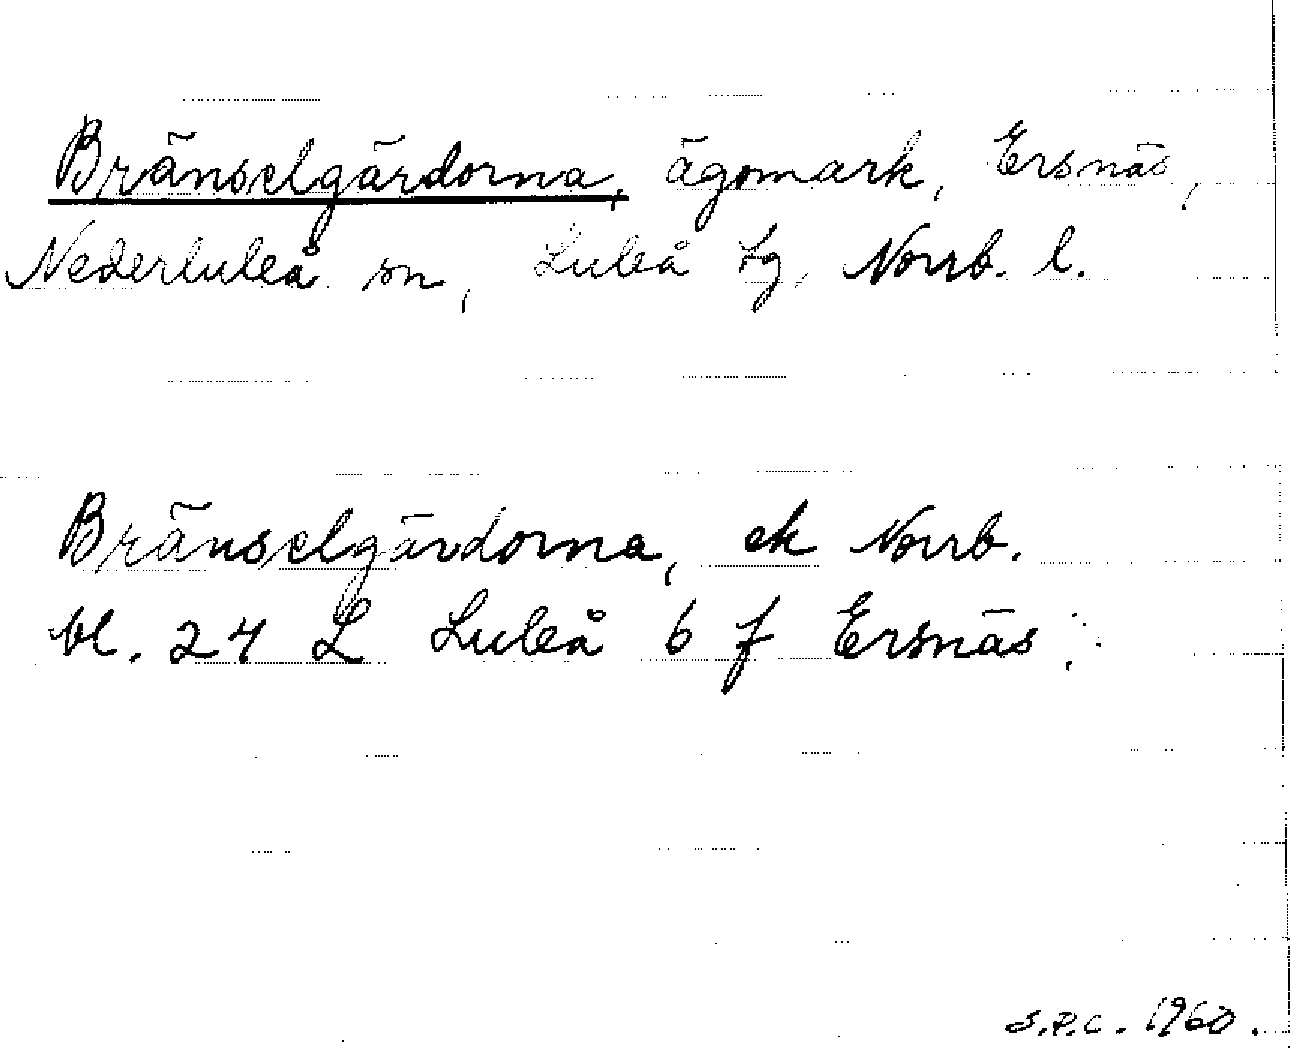 Bränselgärdorna, ägomark, Ersnäs,
Nederluleå sn, Luleå tg, Norrb. l.
Bränselgärdorna, ek Norrb.
bl. 24 L Luleå 6 f Ersnäs.
S.P.C. 1960.